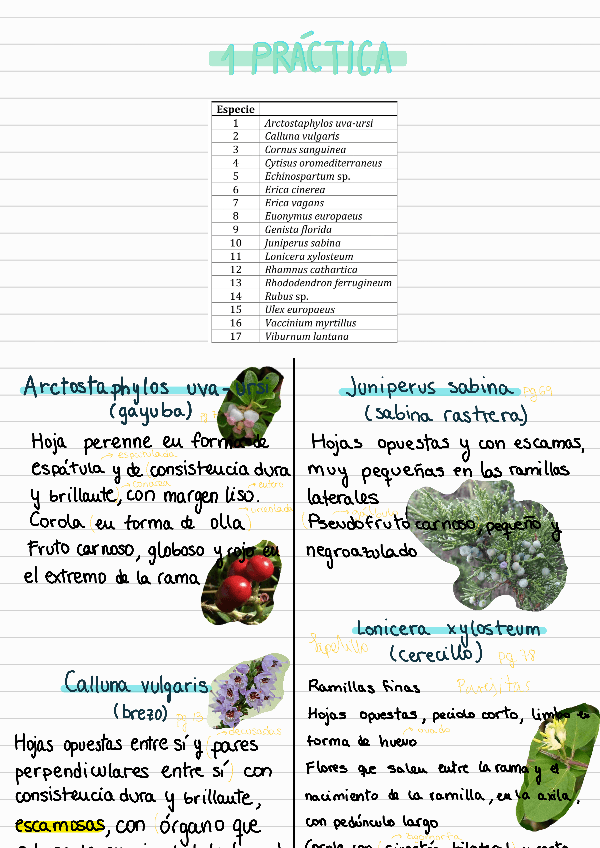 1 PRÁCTICA
Especie
1 Arctostaphylos uva-ursi
2 Calluna vulgaris
3 Cornus sanguinea
4 Cytisus oromediterraneus
5 Echinospartum sp.
6 Erica cinerea
7 Erica vagans
8 Euonymus europaeus
9 Genista florida
10 Juniperus sabina
11 Lonicera xylosteum
12 Rhamnus cathartica
13 Rhododendron ferrugineum
14 Rubus sp.
15 Ulex europaeus
16 Vaccinium myrtillus
17 Viburnum lantana
Arctostaphylos uva-ursi
(gayuba)
Hoja perenne en forma de
→ espatulada
espátula y de consistencia dura
→ coriácea → entero
y brillante, con margen liso.
→ urceolada
Corola (en forma de olla)
Fruto carnoso, globoso y rojo en
el extremo de la rama
Calluna vulgaris
(brezo)
→ decusadas
Hojas opuestas entre sí y pares
perpendiculares entre sí) con
consistencia dura y brillante,
escamosas, con órgano que
Juniperus sabina Pg 69
(sabina rastrera)
Hojas opuestas y con escamas,
muy pequeñas en las ramillas
laterales
Pseudofruto carnoso, pequeño y
negroazulado
Lonicera xylosteum
(cerecillo) pg 78
Ramillas finas
Hojas opuestas, peciolo corto, limbo en
forma de huevo
Flores que salen entre la rama y el
nacimiento de la ramilla, en la axila,
con pedúnculo largo
Corola con simetría bilateral y corta